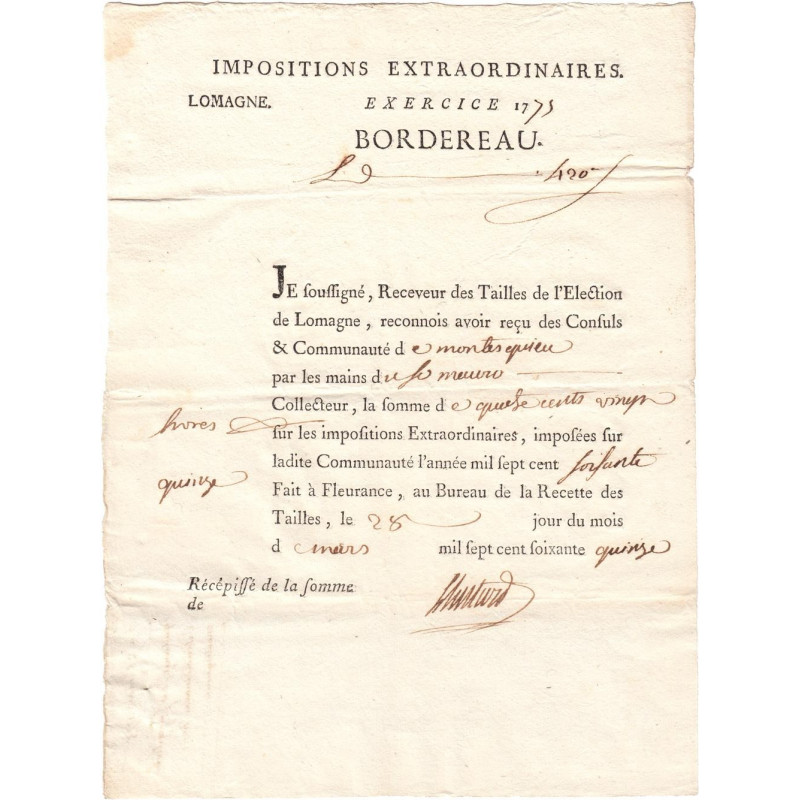 IMPOSITIONS EXTRAORDINAIRES.
LOMAGNE. EXERCICE 1775
BORDEREAU.
420
JE soussigné, Receveur des Tailles de l'Election
de Lomagne, reconnois avoir reçu des Consuls
& Communauté de montesquieu
par les mains du Sr
Collecteur, la somme de quatre cents vingt
livres
sur les impositions Extraordinaires, imposées sur
ladite Communauté l'année mil sept cent soisante
quinze
Fait à Fleurance, au Bureau de la Recette des
Tailles, le 28 jour du mois
de mars mil sept cent soixante quinze
Récépissé de la somme
de